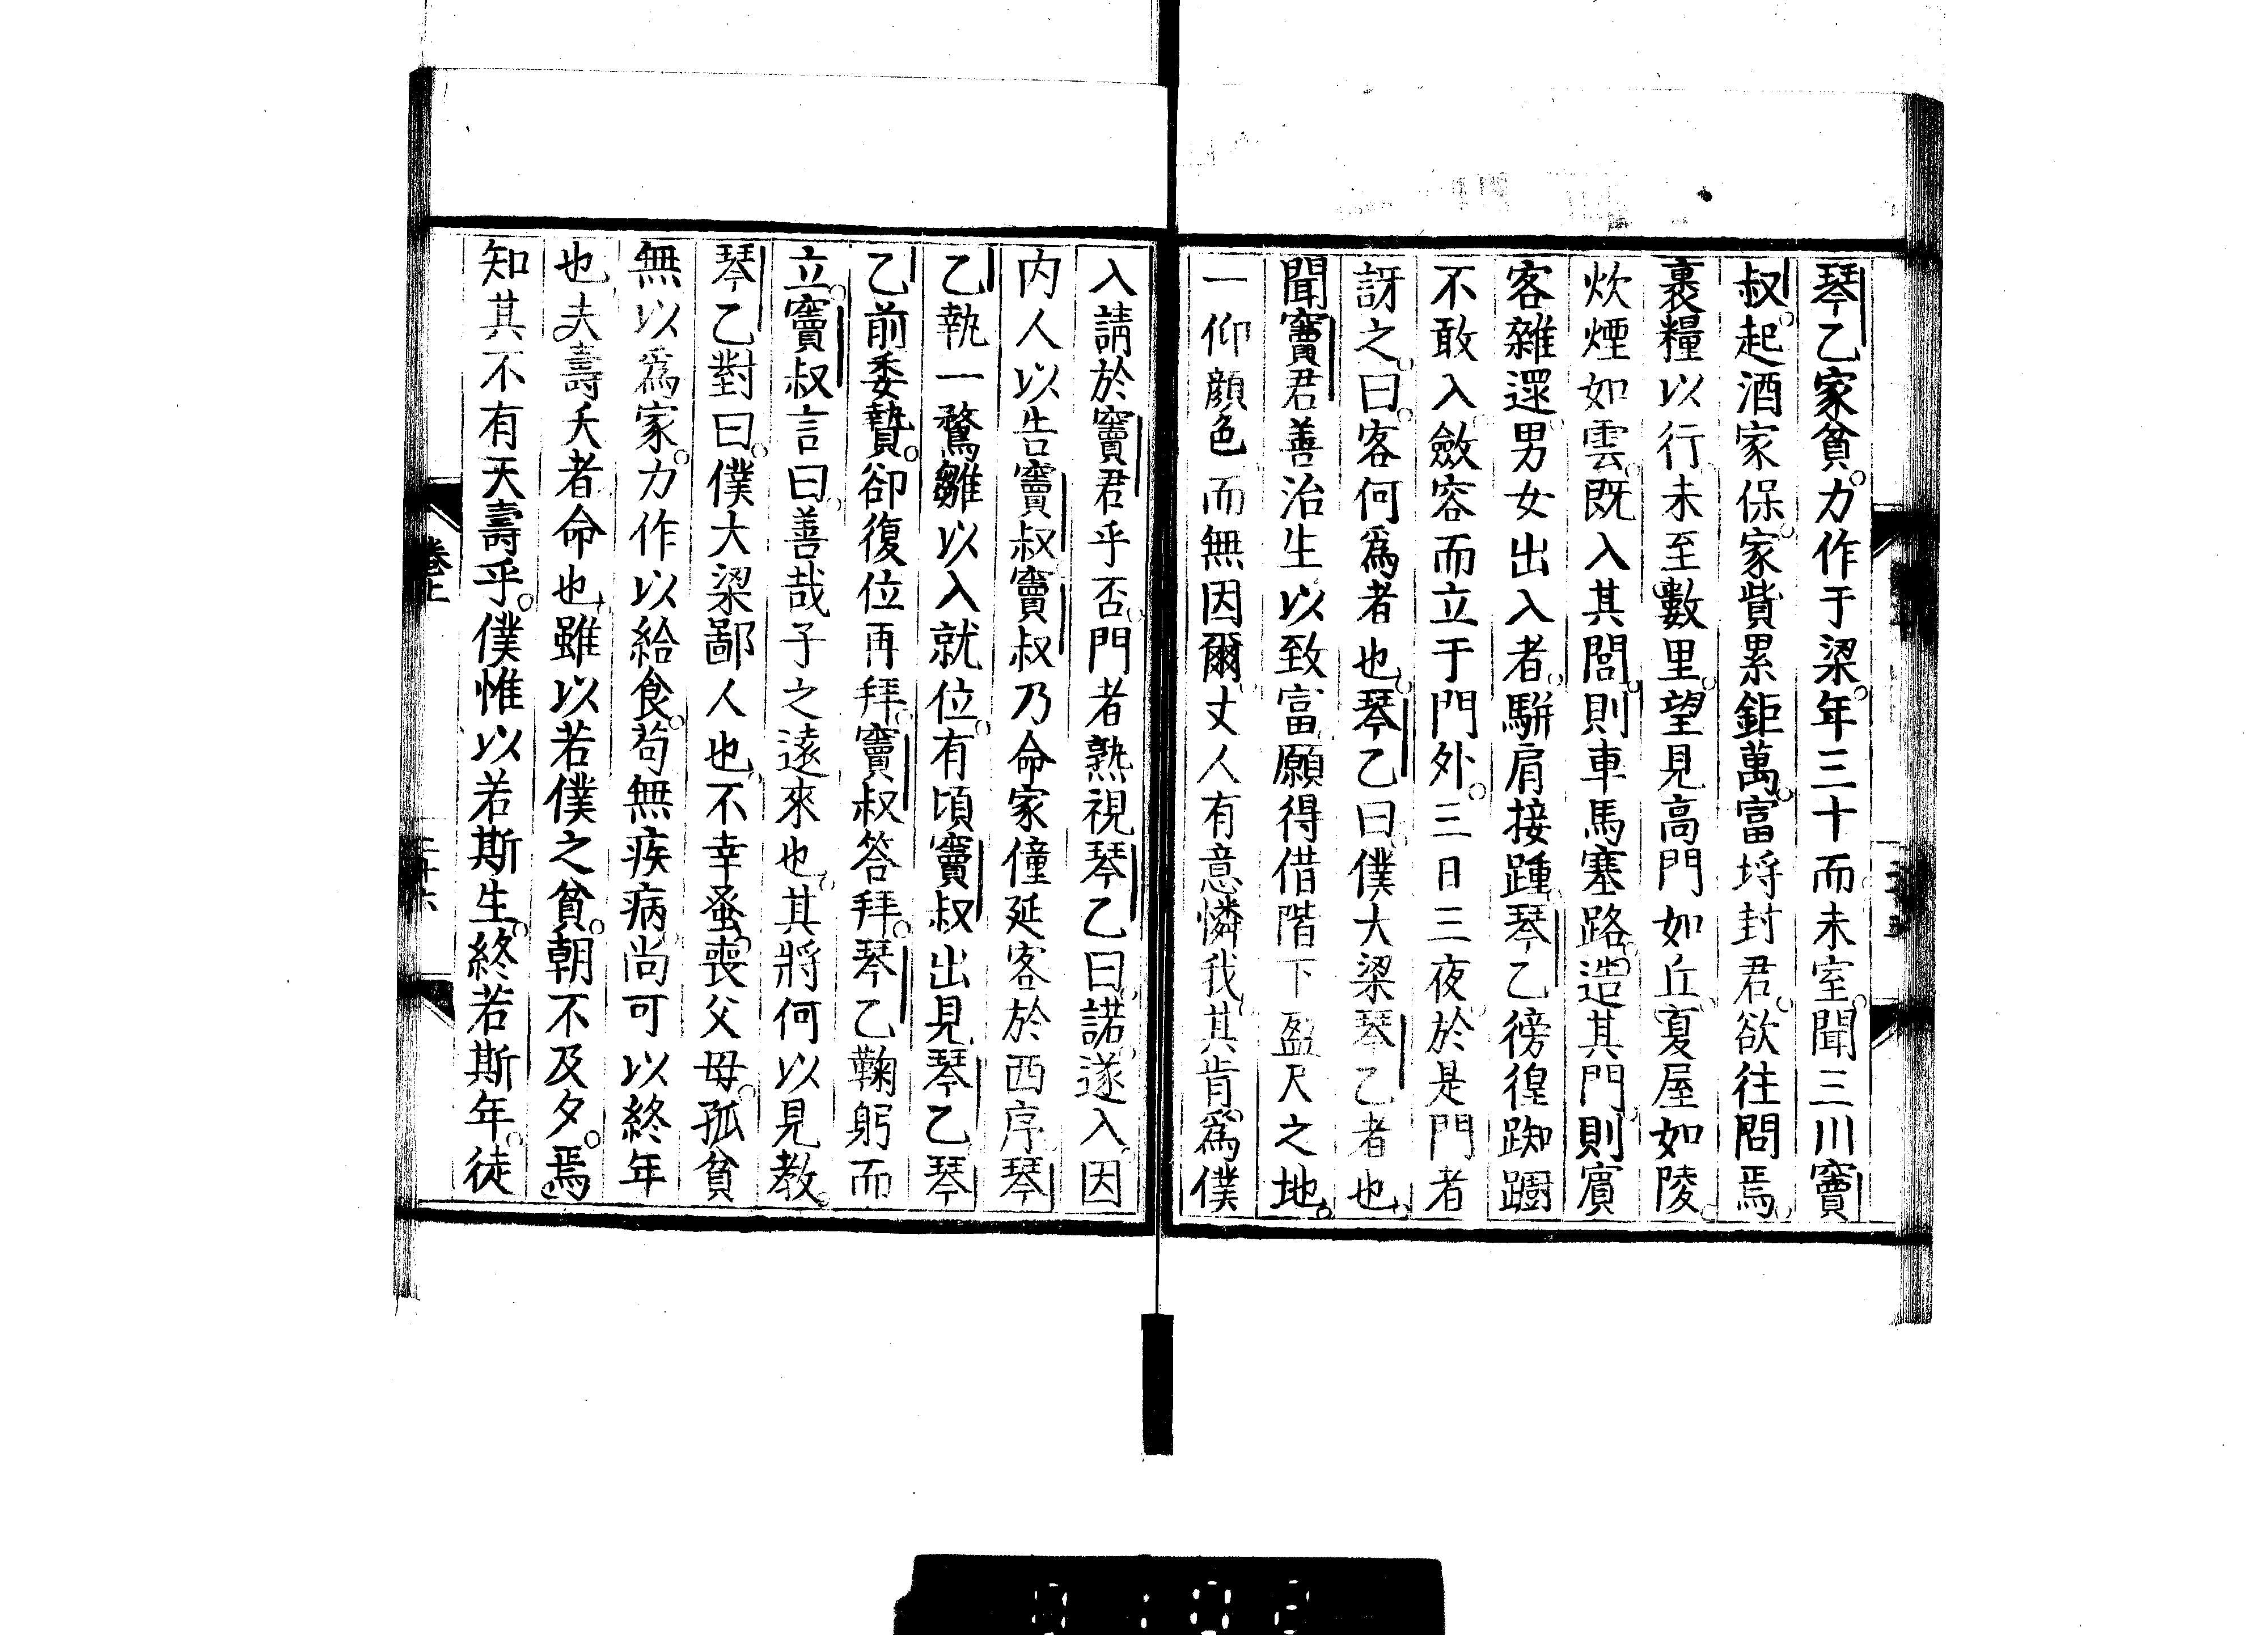 琴乙家貧。力作于梁。年三十而未室。聞三川竇
叔。起酒家保。家貲累鉅萬。富埒封君。欲往問焉。
裹糧以行。未至數里。望見高門如丘。夏屋如陵。
炊煙如雲。既入其閭。則車馬塞路。造其門。則賓
客雜還。男女出入者。駢肩接踵。琴乙徬徨踟躕
不敢入。斂容而立于門外。三日三夜。於是門者
訝之。曰。客何爲者也。琴乙曰。僕大梁琴乙者也。
聞竇君善治生以致富。願得借階下盈尺之地。
一仰顔色。而無因爾。丈人有意憐我。其肯爲僕
入請於竇君乎否。門者熟視琴乙曰。諾。遂入。因
内人以告竇叔。竇叔乃命家僮延客於西序。琴
乙執一鶩雛以入就位。有頃竇叔出見琴乙。琴
乙前委贄。卻復位再拜。竇叔答拜。琴乙鞠躬而
立。竇叔言曰。善哉子之遠來也。其將何以見教。
琴乙對曰。僕大梁鄙人也。不幸蚤喪父母。孤貧
無以爲家。力作以給食。苟無疾病。尚可以終年
也。夫壽夭者命也。雖以若僕之貧。朝不及夕。焉
知其不有天壽乎。僕惟以若斯生。終若斯年。徒
卷上